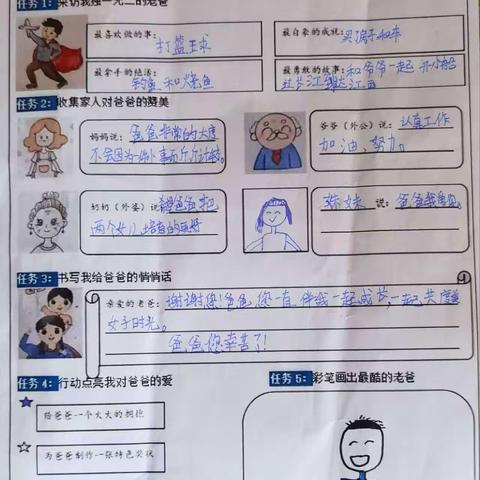 任务1: 采访我独一无二的老爸
最喜欢做的事: 打篮球
最自豪的成就: 买房子和车
最拿手的绝活: 钓鱼和烧鱼
最勇敢的故事: 和爷爷一起开小船
从长江到达江西
任务2: 收集家人对爸爸的赞美
妈妈说: 爸爸非常的大度
不会因为一件小事而斤斤计较。
爷爷（外公）说: 认真工作
加油，努力。
奶奶（外婆）说: 爸爸把
两个女儿培育的
妹妹 说: 爸爸我爱您
任务3: 书写我给爸爸的悄悄话
亲爱的老爸: 谢谢您!爸爸,您一直伴我一起成长,一起共度
时光。
爸爸您辛苦了!
任务4: 行动点亮我对爸爸的爱
任务5: 彩笔画出最酷的老爸
给爸爸一个大大的拥抱
为爸爸制作一张特色奖状